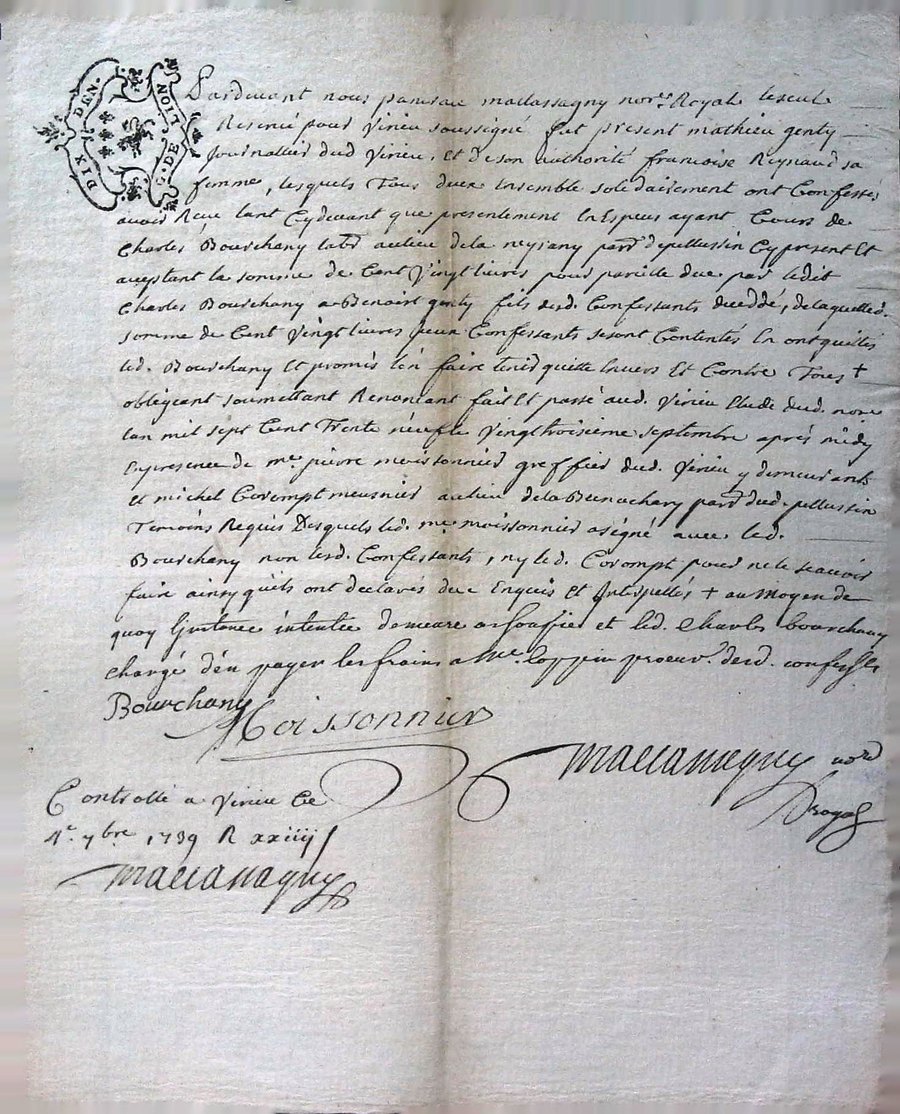 DIX DEN. G. DE LION
Pardevant nous malassagny nore. Royal le seul
Reservé pour virieu soussigné fut present mathieu genty
journallier dud virieu, et de son authorité francoise Reynaud sa
femme, lesquels tous deux ensemble solidairement ont Confessés
avoir Receu tant Cydevant que presentement En Especes ayant Cours de
Charles Bourchany labr au lieu de la neyrany parr. de pellussin Cy present Et
aceptant la somme de Cent Vingt livres pour pareille due par ledit
Charles Bourchany a Benoist genty fils desd. Confessants decedé, de laquelle d.
somme de Cent Vingt livres Iceux Confessants se sont Contentés En ont quittés
led. Bourchany Et promis l'en faire tenir quitte Envers Et Contre Tous +
obligeant soumettant Renoncant fait Et passé aud. virieu Etude dud. nore
lan mil sept Cent Trente neuf le Vingt troisieme septembre aprés midy
En presence de me. pierre moissonnier greffier dud. virieu y demeurant
et michel Corompt meusnier au lieu de la parr dud. pellussin
Temoins Requis Desquels led. me. moissonnier a signé avec led.
Bourchany non lesd. Confessants, ny led. Corompt pour ne le scavoir
faire ainsy quils ont declarés de ce Enquis Et Interpellés + au moyen de
quoy l'instance intentée demeure assoupie et led. Charles bourchany
chargé d'en payer les frains a Me. Coppin procur. desd. confessts
Bourchany
Moissonnier
malassagny nore
Royal
Controllé a virieu Ce
4e. 7bre. 1739 R xxiiij s
malassagny